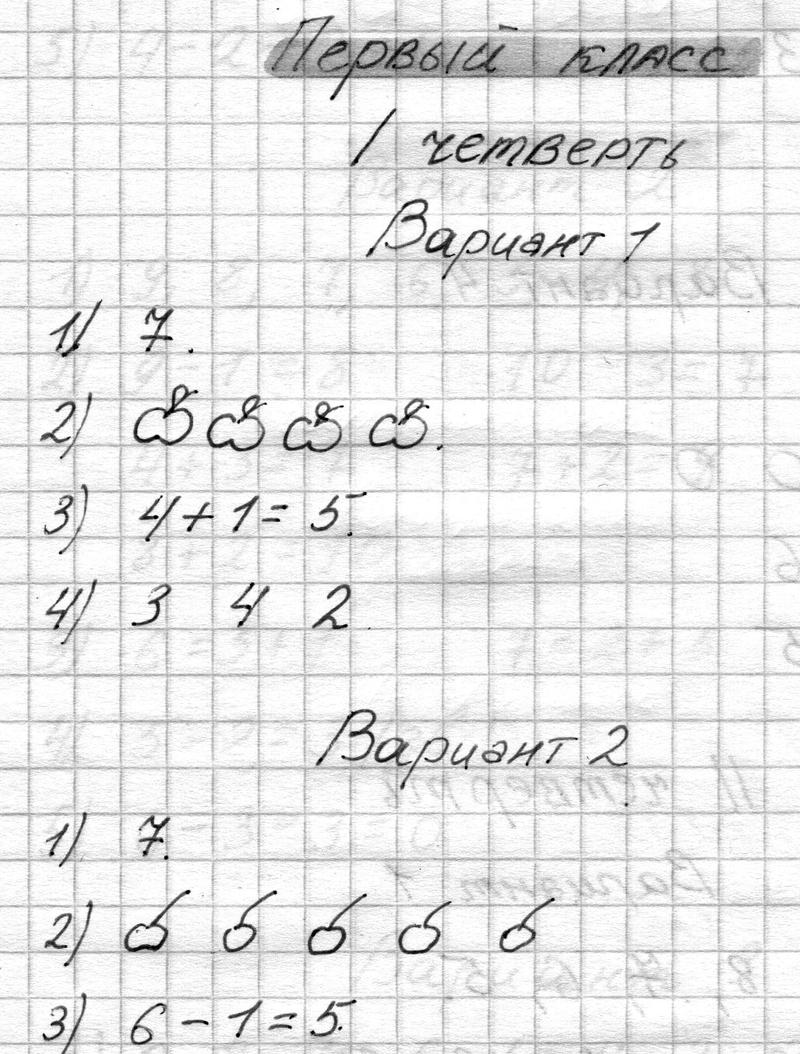 Первый класс
I четверть
Вариант 1
1) 7.
2)
3) 4+1=5.
4) 3 4 2
Вариант 2
1) 7.
2)
3) 6-1=5.